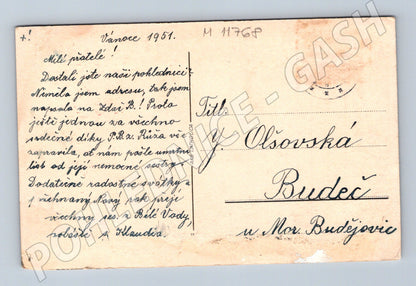 +!
Vánoce 1951.
M 11768
Milí přátelé!
Dostali jste naši pohlednici?
Neměla jsem adresu, tak jsem
napsala na Zdar B.! Prota
ještě jednou za všechno
srdečné díky, P. B. v. Růža vše
zapravila, at nám pošle umrtní
list od její nemocné sestry.
Dodatečně radostné svátky a
všechnany Nový rok přeje
všechny ses. z Bílé Vody,
zvláště s. Klaudia.
Titl.
Y. Olšovská
Budeč
u Mor. Budějovic
POHLEDNICE - GASH